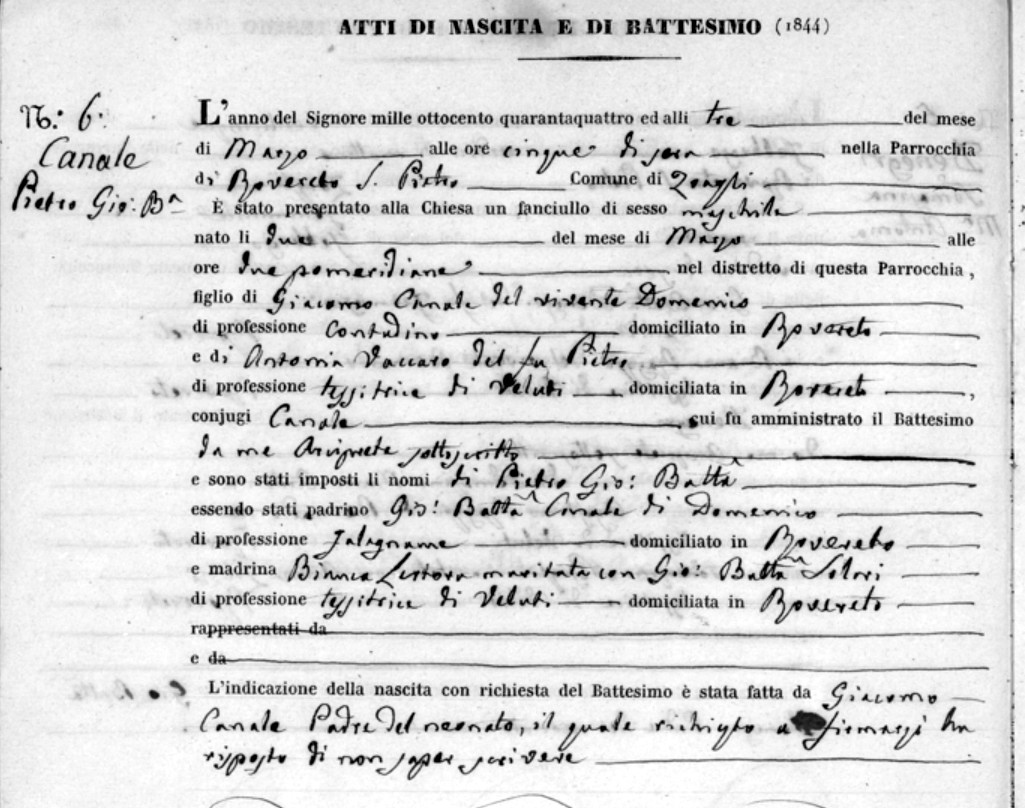 ATTI DI NASCITA E DI BATTESIMO (1844)
N.: 6.
Canale
Pietro Gio: Bª
L'anno del Signore mille ottocento quarantaquattro ed alli tre del mese
di Marzo alle ore cinque di sera nella Parrocchia
di Rovereto S. Pietro Comune di Zoagli
È stato presentato alla Chiesa un fanciullo di sesso maschile
nato li due del mese di Marzo alle
ore due pomeridiane nel distretto di questa Parrocchia,
figlio di Giacomo Canale del vivente Domenico
di professione Contadino domiciliato in Rovereto
e di Antonia Vaccaro del fu Pietro
di professione tessitrice di Veluti domiciliata in Rovereto,
conjugi Canale cui fu amministrato il Battesimo
da me Arciprete sottoscritto
e sono stati imposti li nomi di Pietro Gio: Batta
essendo stati padrino Gio: Batta Canale di Domenico
di professione falegname domiciliato in Rovereto
e madrina Bianca maritata con Gio: Batta Solari
di professione tessitrice di Veluti domiciliata in Rovereto
rappresentati da
e da
L'indicazione della nascita con richiesta del Battesimo è stata fatta da Giacomo
Canale Padre del neonato, il quale richiesto a firmarsi ha
risposto di non saper scrivere